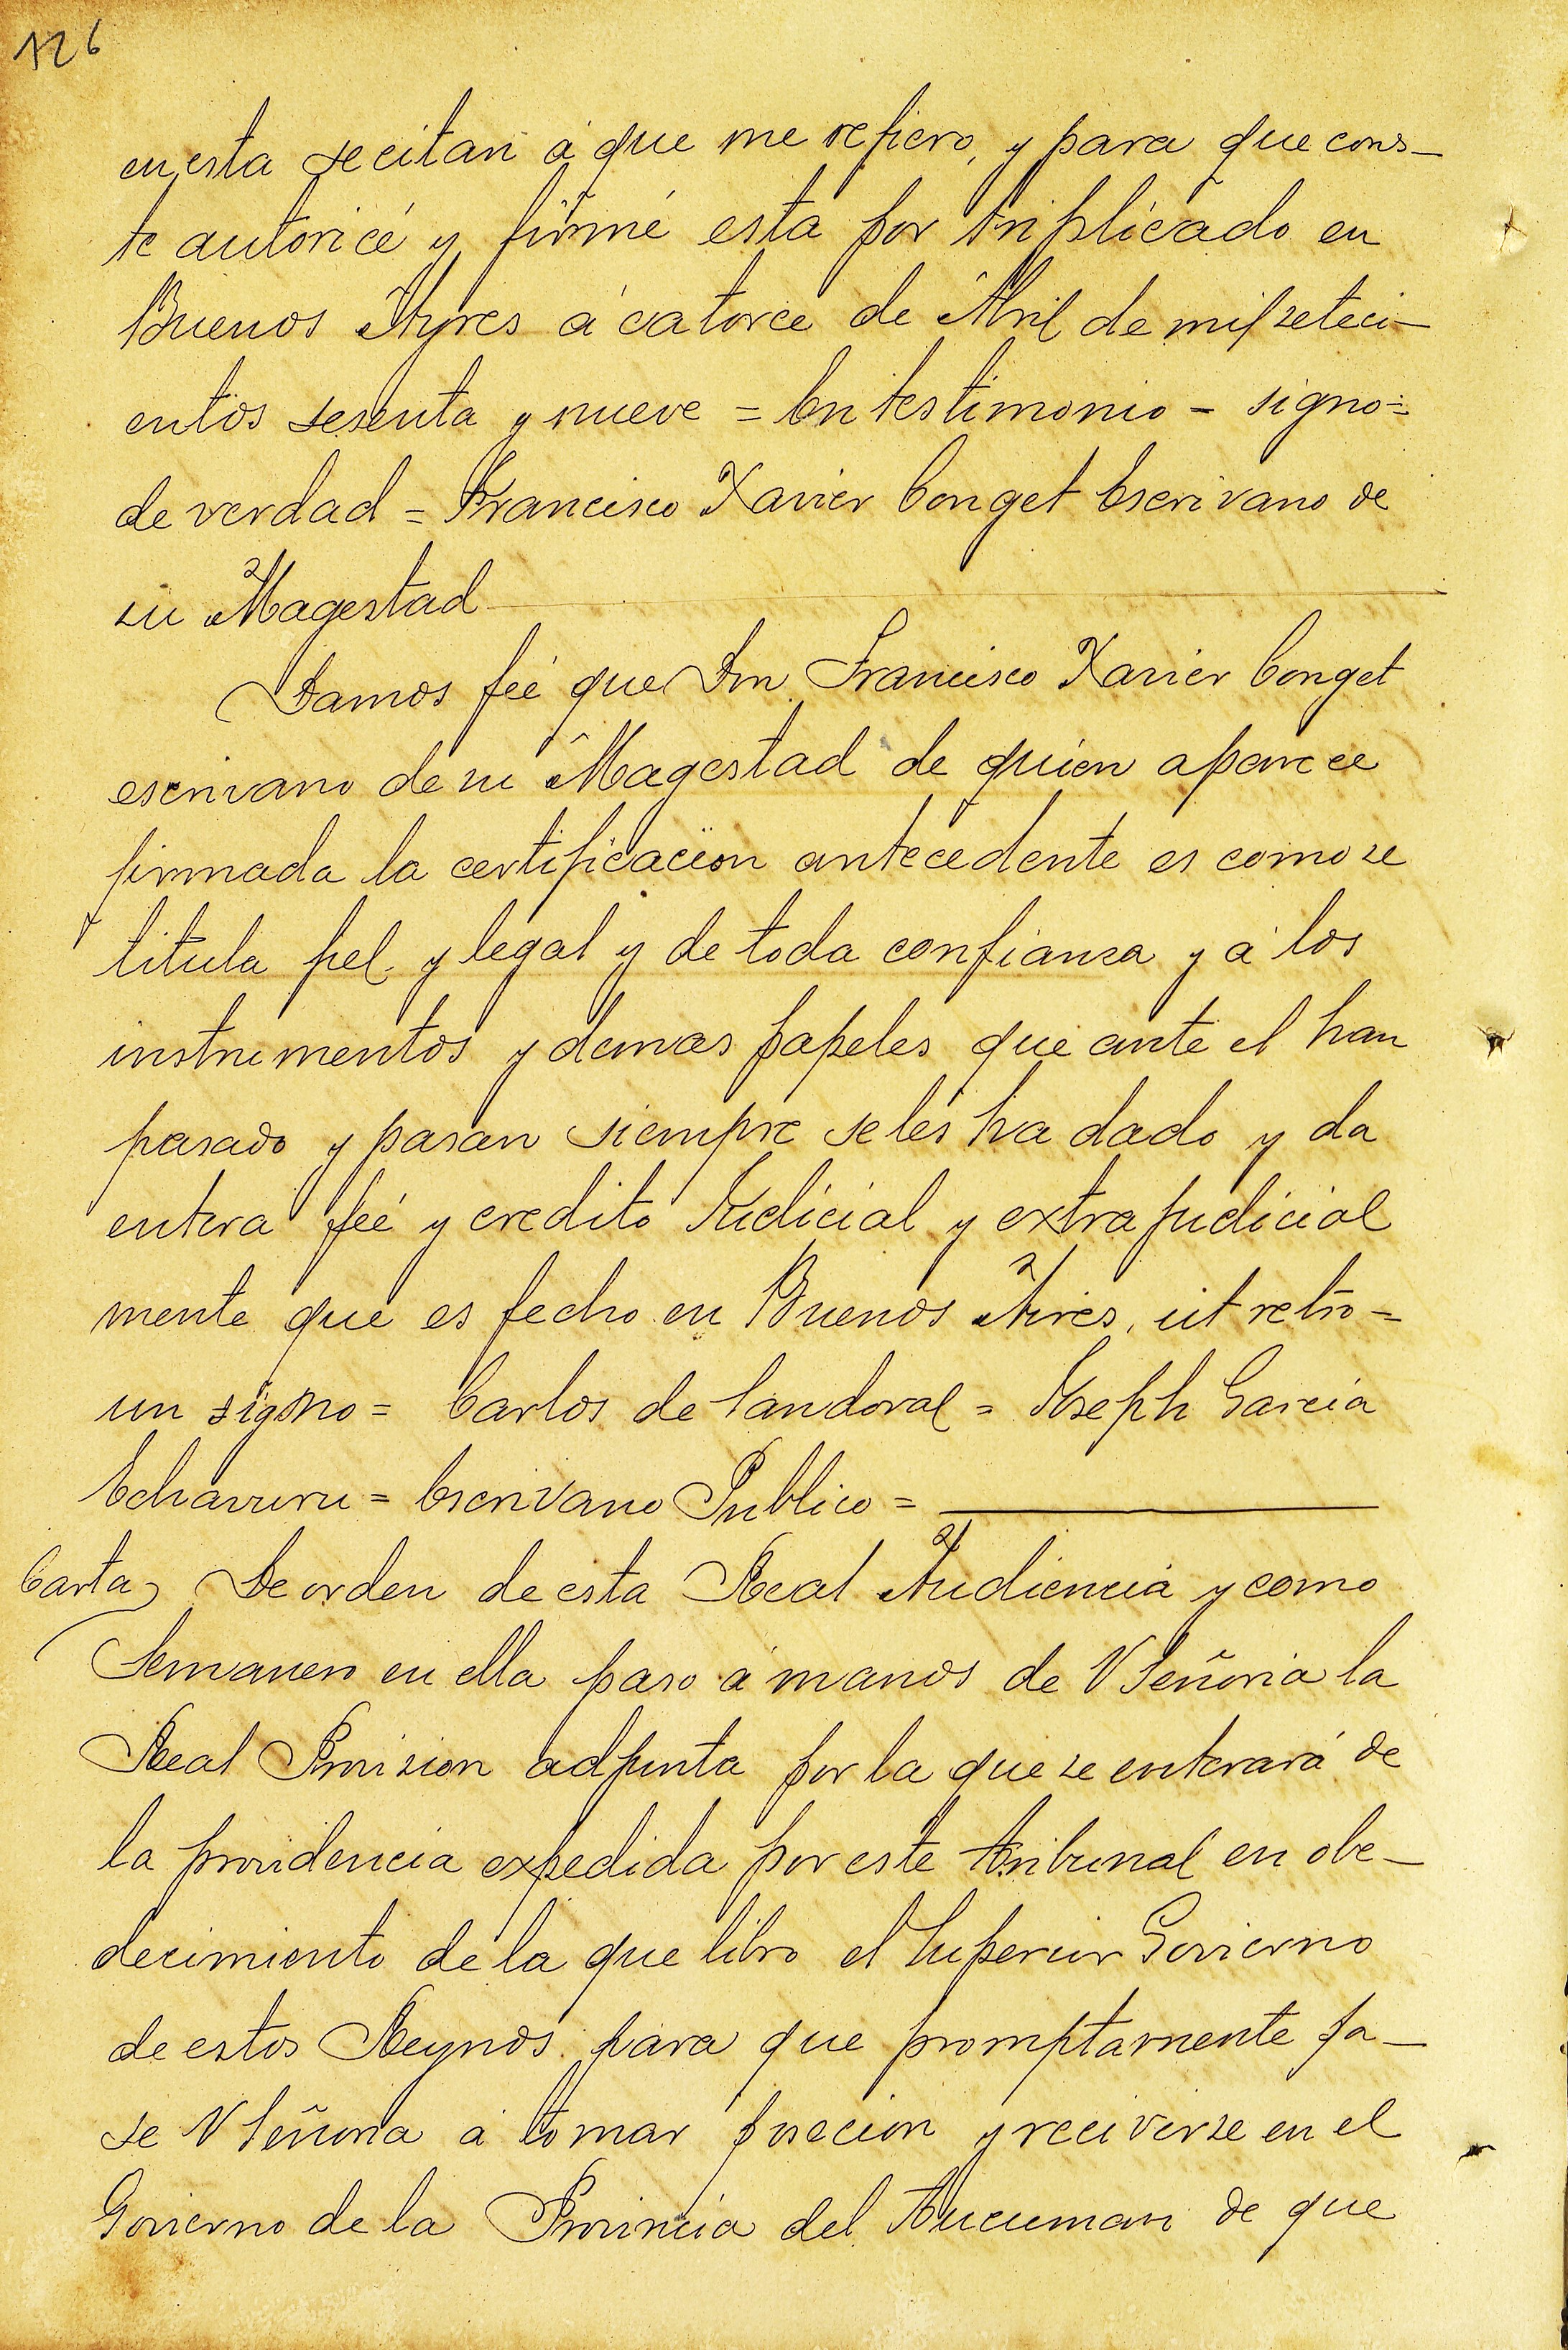 126
en esta se citan á que me refiero, y para que cons-
te autoricé y firmé esta por triplicado en
Buenos Ayres á catorce de Abril de mil seteci-
entos sesenta y nueve = En testimonio - signo=
de verdad = Francisco Xavier Conget Escrivano de
su Magestad
Damos feé que Dn. Francisco Xavier Conget
escrivano de su Magestad de quien aparece
firmada la certificacion antecedente es como se
titula fiel y legal y de toda confianza y á los
instrumentos y demas papeles que ante el han
pasado y pasan siempre se les ha dado y da
entera feé y credito Judicial y extrajudicial
mente que es fecho en Buenos Aires, ut retro=
un signo = Carlos de Sandoval = Joseph Garcia
Echavuru = Escrivano Publico =
Carta De orden de esta Real Audiencia y como
Semanero en ella paso á manos de V Señoria la
Real Provision adjunta por la que se enterará de
la providencia expedida por este tribunal en obe-
decimiento de la que libro el Superior Govierno
de estos Reynos para que promptamente pa-
se V Señoria á tomar posecion y reciverse en el
Govierno de la Provincia del Tucuman de que